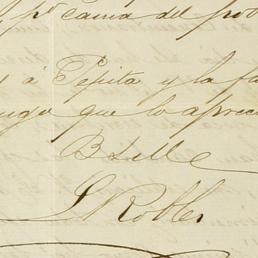 pr. causa del
á Pepita y la fa
que lo aprec
B L M
J Robles